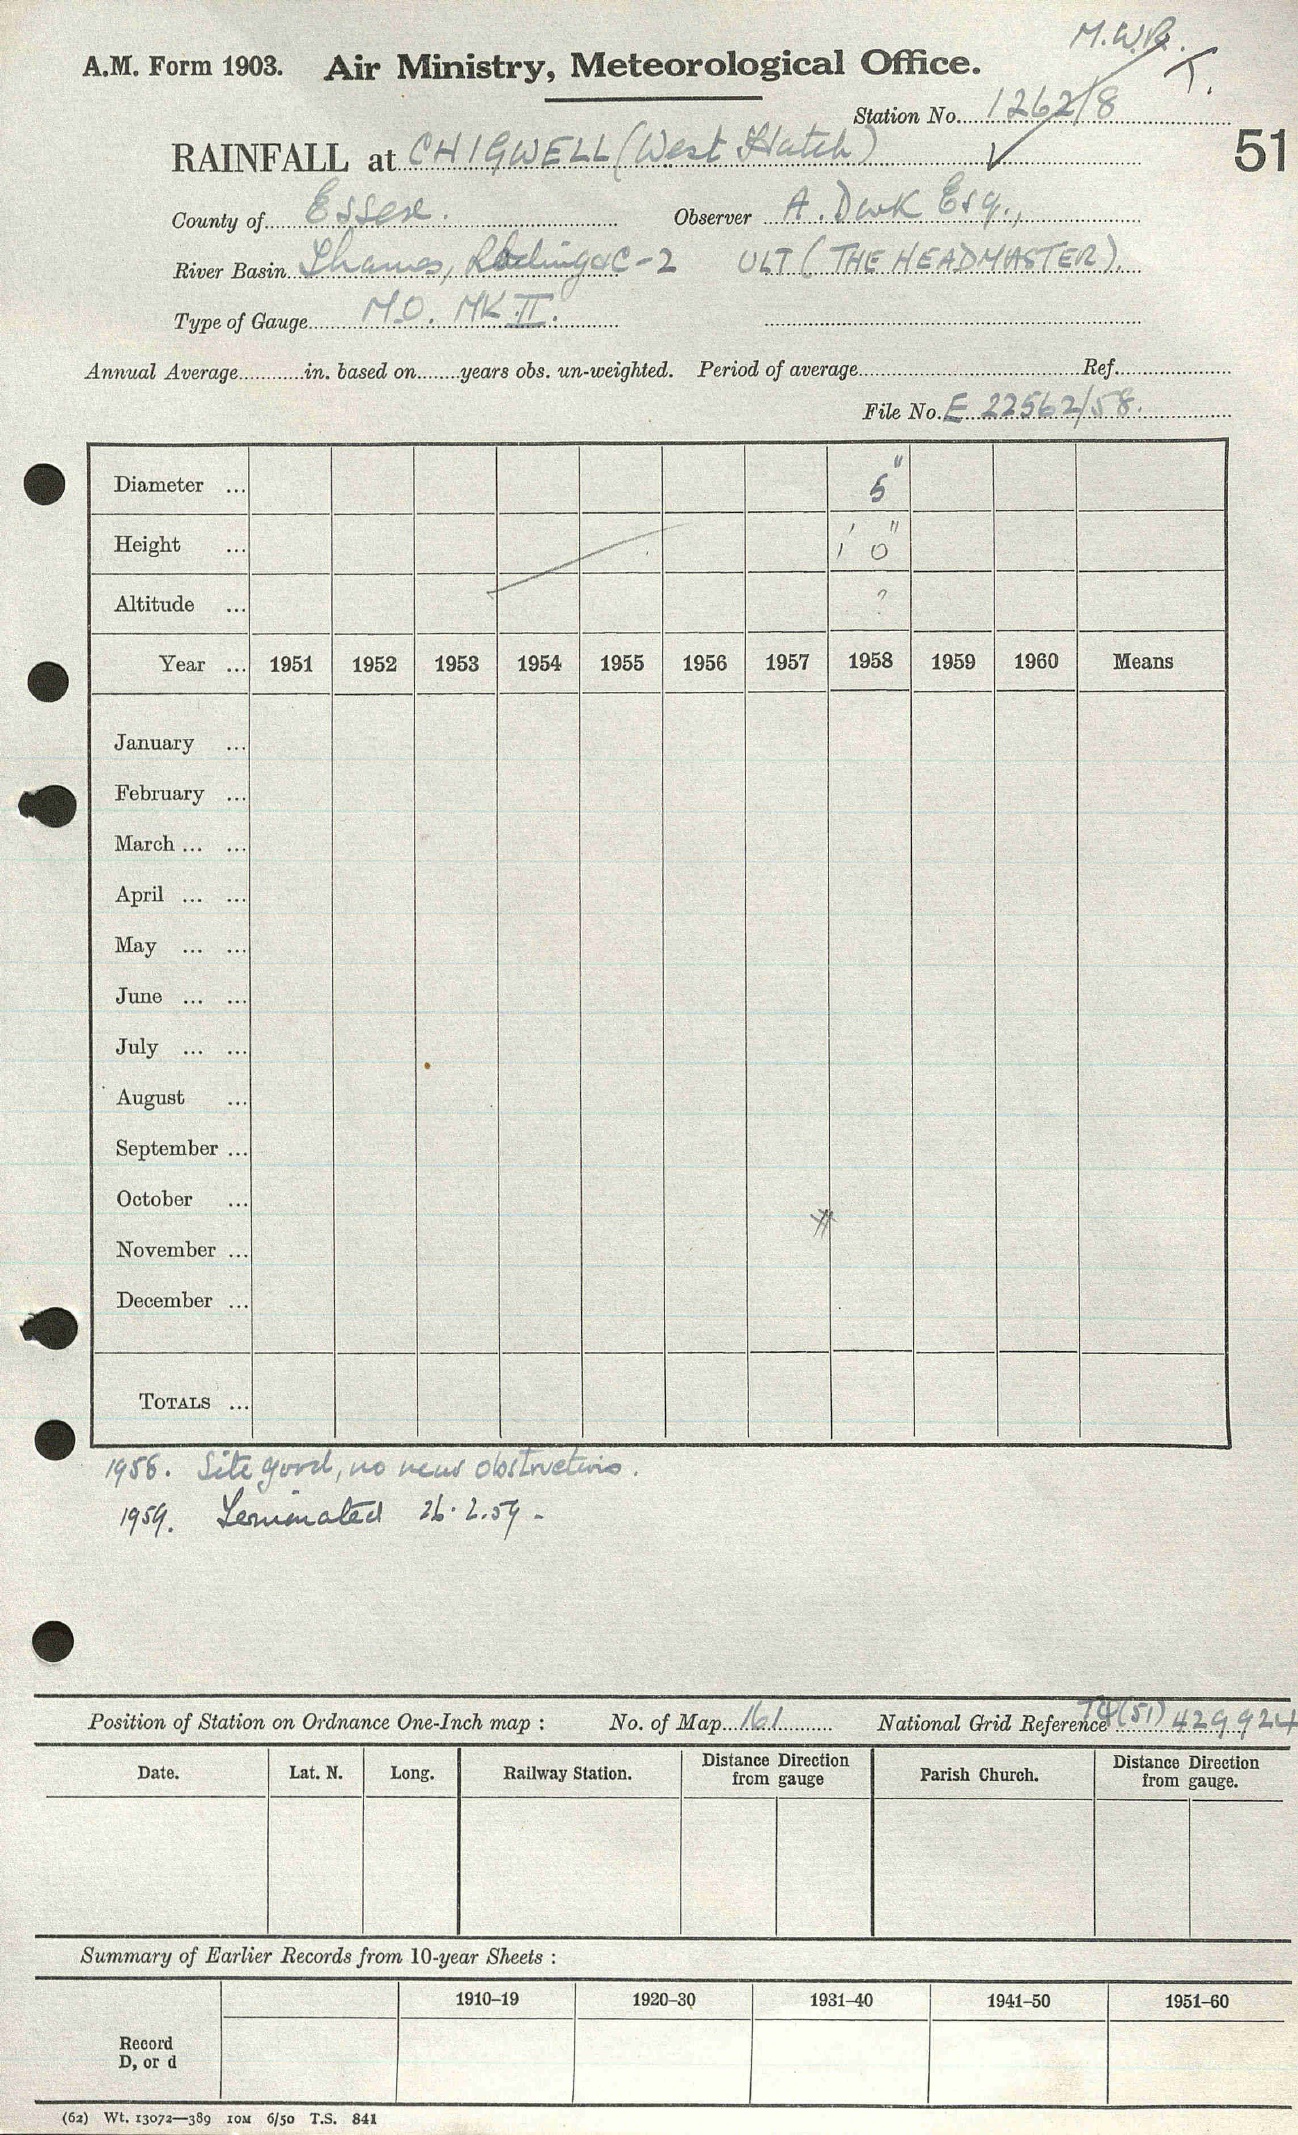 M.W.R.
T.
A.M. Form 1903. Air Ministry, Meteorological Office.
Station No. 1262/8
RAINFALL at CHIGWELL (West Hatch)
51
County of Essex. Observer A. Esq.,
River Basin Thames, Roding &C-2 ULT (THE HEADMASTER).
Type of Gauge M.O. MK II.
Annual Average............in. based on........years obs. un-weighted. Period of average........Ref.........
File No. E 22562/58.
Diameter ... 5"
Height ... 1' 0"
Altitude ... ?
Year ... 1951 1952 1953 1954 1955 1956 1957 1958 1959 1960 Means
January ...
February ...
March ... ...
April ... ...
May ... ...
June ... ...
July ... ...
August ...
September ...
October ...
November ...
December ...
TOTALS ...
Site good, no near obstructions.
1959. Terminated 26.2.59.
Position of Station on Ordnance One-Inch map : No. of Map 161 National Grid Reference (51) 429924
Date. Lat. N. Long. Railway Station. Distance Direction from gauge Parish Church. Distance Direction from gauge.
Summary of Earlier Records from 10-year Sheets :
1910–19 1920–30 1931–40 1941–50 1951–60
Record
D, or d
(62) Wt. 13072—389 10M 6/50 T.S. 841